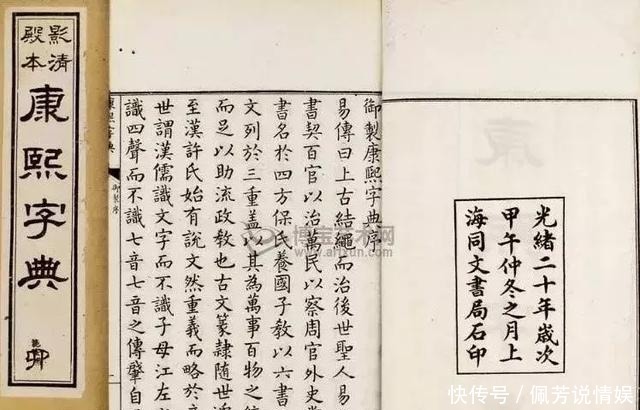 光緒二十年歲次
甲午仲冬之月上
海同文書局石印
御製康熙字典序
易傳曰上古結繩而治後世聖人易
書契百官以治萬民以察周官外史掌
書名於四方保氏養國子教以六書
文列於三重蓋以其為萬事百物之
而足以助流政教也古文篆隸隨世
至漢許氏始有說文然重義而略於
世謂漢儒識文字而不識子母江左
識四聲而不識七音七音之傳肇自
康熙字典 御製序
影清
殿本
康熙字典
博宝艺术网
artxun.com
快传号/佩芳说情娱